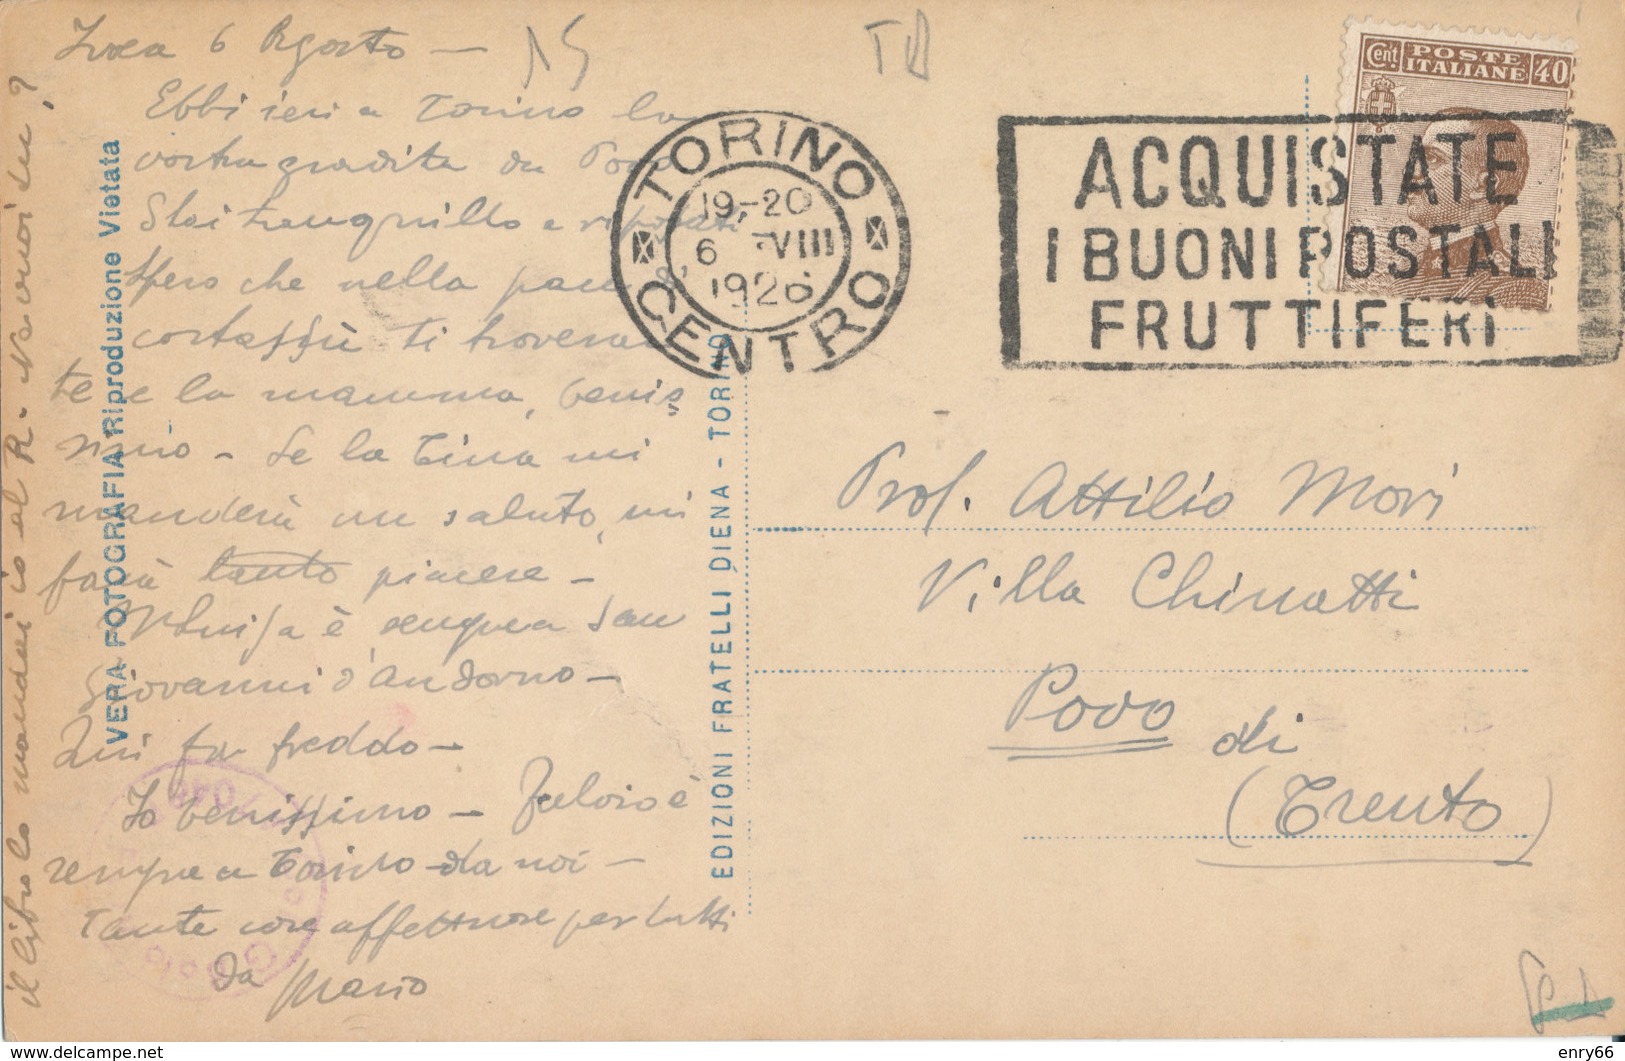 6 Agosto —
Ebbi ieri a Torino la
vostra gradita da Povo
Stai tranquillo e riposati
Spero che nella pace
costassù ti troverai
te e la mamma, benis
simo — Se la Tina mi
manderà un saluto, mi
farà tanto piacere —
è sempre a San
Giovanni d'Andorno —
Qui fa freddo —
Io benissimo — Fulvio è
sempre a Torino da noi —
Tante cose affettuose per tutti
da Mario
il libro lo mandai io al R.
VERA FOTOGRAFIA Riproduzione Vietata
EDIZIONI FRATELLI DIENA - TORINO
TORINO
19-20
6 -VIII
1926
CENTRO
ACQUISTATE
I BUONI POSTALI
FRUTTIFERI
Cent. POSTE ITALIANE 40
Prof. Attilio Mori
Villa Chinatti
Povo
di
(Trento)
enry66